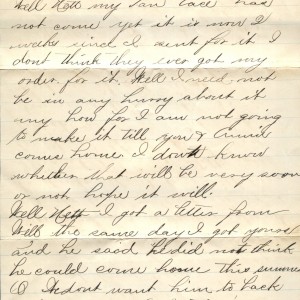 Well Nett my Tan lace has
not come yet it is now 2
weeks since I sent for it. I
dont think they ever got my
order for it. Well I need not
be in any hurry about it
any how for I am not going
to make it till you & Annie
come home I dont know
whether that will be very soon
or not, hope it will.
Well Nett I got a letter from
Will the same day I got yours
and he said he did not think
he could come home this summer
O I dont want him to back